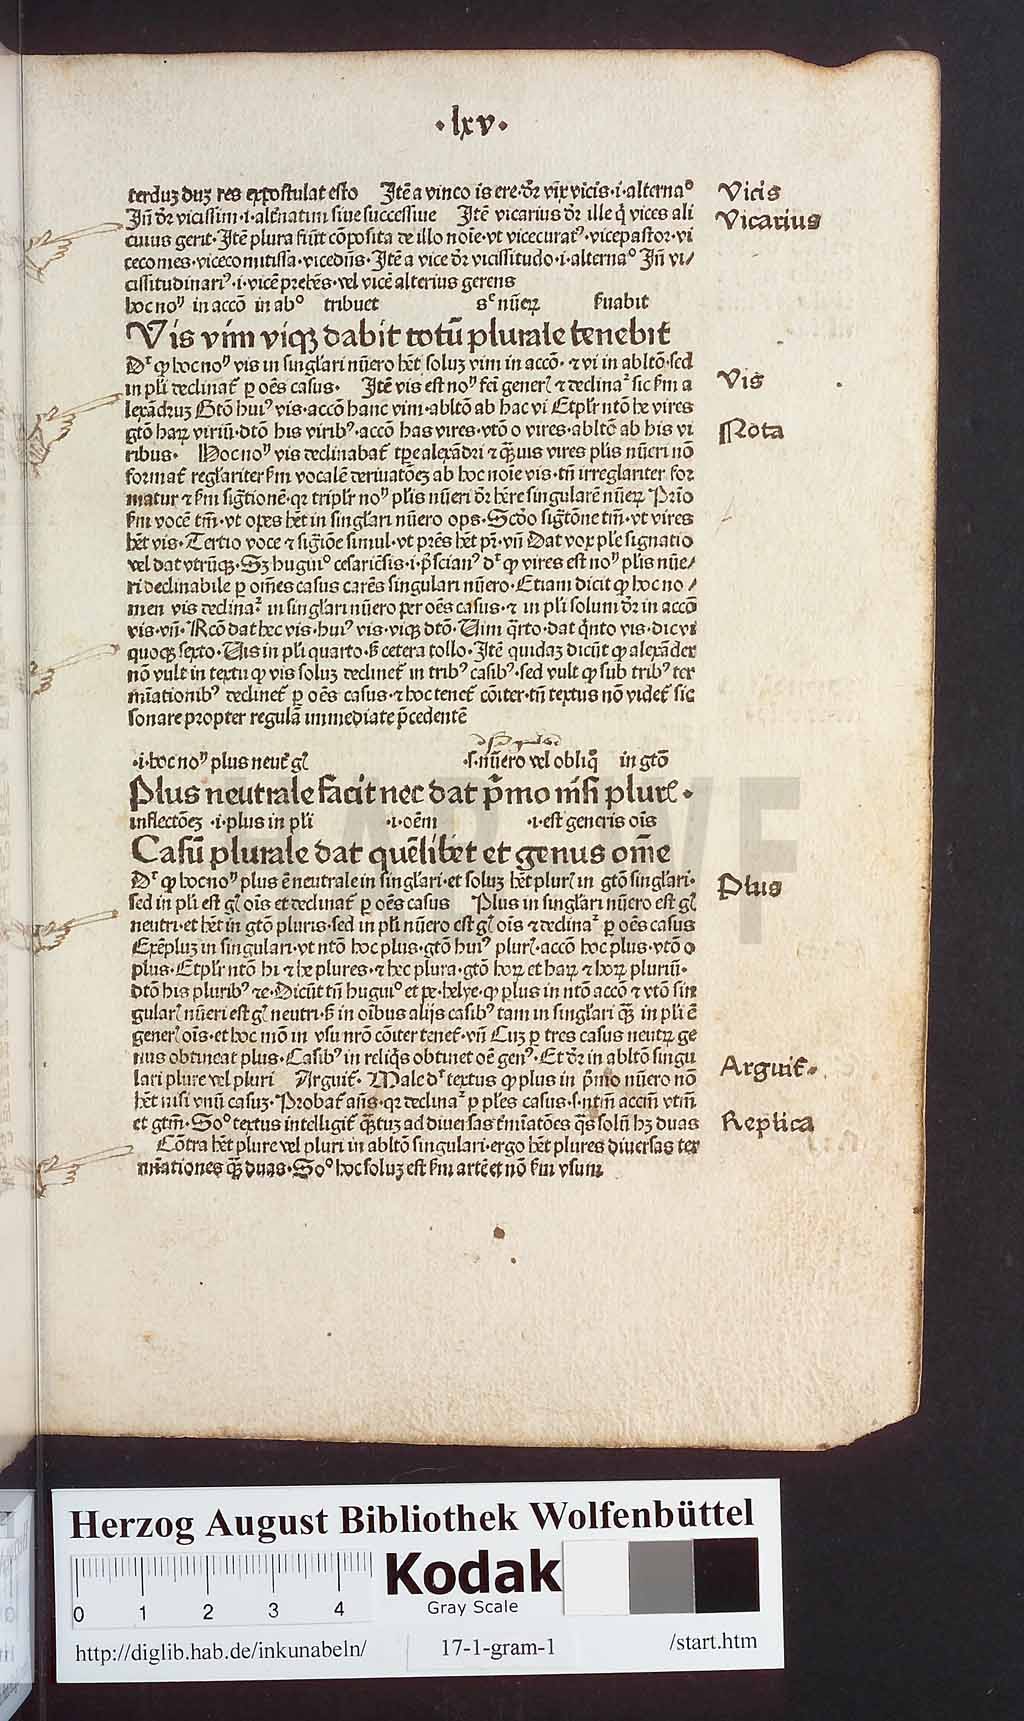 ·lxv·
terduʒ duʒ res expostulat esto Itē a vinco is ere·dr̄ vix vicis·i·alternaº
Vicis
Jn̄ dr̄ vicissim·i·alt̄natim siue successiue Itē vicarius dr̄ ille q̇ vices ali
Vicarius
cuius gerit·Itē plura sūt cōposita de illo noīe·vt vicecuratꝰ·vicepastor·vi
cecomes·vicecomitissa·vicedn̄s·Itē a vice dr̄ vicissitudo·i·alternaº Jn̄ vi⸗
cissitudinariꝰ·i·vicē prebēs·vel vicē alterius gerens
hoc noᵐ in accō in abº tribuet nūerꝝ ẜuabit
Vis vim viqꝫ dabit totū plurale tenebit
Dʳ ꝙ hoc noᵐ vis in singl̓ari nūero hēt soluʒ vim in accō·⁊ vi in abltō·sed
in pl̓i declinat᷑ ꝑ oēs casus· Itē vis est noᵐ fēi gener̓ ⁊ declinaᷣ sic ẜm a
Vis
lexādruʒ Gtō huiꝰ vis·accō hanc vim·abltō ab hac vi Etpl̓r ntō he vires
gtō harꝝ viriū·dtō his viribꝰ·accō has vires·vtō o vires·abltō ab his vi
Nota
ribus· Hoc noᵐ vis declinabat᷑ tꝑe alexādri ⁊ qᷓuis vires pl̓is nūeri nō
format᷑ regl̓ariter ẜm vocalē deriuatōeʒ ab hoc noīe vis·tn̄ irregl̓ariter for
matur ⁊ ẜm sigtionē·qꝛ tripl̓r noᵐ pl̓is nūeri dr̄ hr̄e singularē nūerꝝ Prīo
ẜm vocē tm̄·vt opes hēt in singl̓ari nūero ops·Scd̓o sigtōne tm̄·vt vires
hēt vis·Tertio voce ⁊ sigiōe simul·vt pr̄es hēt pr̄·vn̄ Dat vox pl̓e signatio
vel dat vtrūqꝫ·Sꝫ huguiº cesariēsis·i·p̄scianꝰ dʳ ꝙ vires est noᵐ pl̓is nūe⸗
ri declinabile ꝑ oīnes casus carēs singulari nūero·Etiam dicit ꝙ hoc no⸗
men vis declinaᷣ in singl̓ari nūero per oēs casus·⁊ in pl̓i solum dr̄ in accō
vis·vn̄·Rcō dat hec vis·huiꝰ vis·viqꝫ dtō·Uim q̄rto·dat q̇nto vis·dic vi
quoqꝫ sexto·Uis in pl̓i quarto·ẜ cetera tollo·Itē quidaʒ dicūt ꝙ alexāder
nō vult in textu ꝙ vis soluʒ declinet᷑ in tribꝰ casibꝰ·sed vult ꝙ sub tribꝰ ter
mīationibꝰ declinet᷑ ꝑ oēs casus·⁊ hoc tenet᷑ cōiter·tn̄ textus nō videt᷑ sic
sonare propter regulā immediate p̄cedentē
·i·hoc noᵐ plus neut᷑ gl̓ ·s·nūero vel obliq̊ in gtō
Plus neutrale facit nec dat p̄mo nisi plur̓·
inflectōeʒ ·i·plus in pl̓i ·i·oēm ·i·est generis oīs
Casū plurale dat quēlibet et genus om̄e
Dʳ ꝙ hoc noᵐ plus ē neutrale in singl̓ari·et soluʒ hēt plur̓ in gtō singl̓ari·
Plus
sed in pl̓i est gl̓ oīs et declinat᷑ ꝑ oēs casus Plus in singl̓ari nūero est gl̓
neutri·et hēt in gtō pluris·sed in pl̓i nūero est gl̓ oīs ⁊ declinaᷣ ꝑ oēs casus
Exēpluʒ in singulari·vt ntō hoc plus·gtō huiꝰ plur̓·accō hoc plus·vtō o
plus·Etpl̓r ntō hi ⁊ he plures·⁊ hec plura·gtō horꝝ et harꝝ ⁊ horꝝ pluriū·
dtō his pluribꝰ ⁊c·Dicūt tn̄ huguiº et pe·helye·ꝙ plus in ntō accō ⁊ vtō sin
gular̓ nūeri est gl̓ neutri·ẜ in oībus alijs casibꝰ tam in singl̓ari qᷓꝫ in pl̓i ē
gener̓ oīs·et hoc mō in vsu nr̄o cōiter tenet᷑·vn̄ Cuʒ ꝑ tres casus neutrꝝ ge
nus obtineat plus·Casibꝰ in reliq̇s obtinet oē genꝰ·Et dr̄ in abltō singu
lari plure vel pluri Arguit᷑·Male dʳ textus ꝙ plus in p̄mo nūero nō
Arguit᷑·
hēt nisi vnū casuʒ·Probat᷑ an̄s·qꝛ declinaᷣ ꝑ pl̓es casus·s·ntm̄ accm̄ vtm̄
et gtm̄·Soº textus intelligit᷑ qᷓꝫtuʒ ad diuersas t᷑mīatōes qᷓs solū hꝫ duas
Replica
Cōtra hēt plure vel pluri in abltō singulari·ergo hēt plures diuersas ter
mīationes qᷓꝫ duas·Soº hoc soluʒ est ẜm artē et nō ẜm vsum
HAB WF
Herzog August Bibliothek Wolfenbüttel
0 1 2 3 4
Kodak
Gray Scale
http://diglib.hab.de/inkunabeln/ 17-1-gram-1 /start.htm